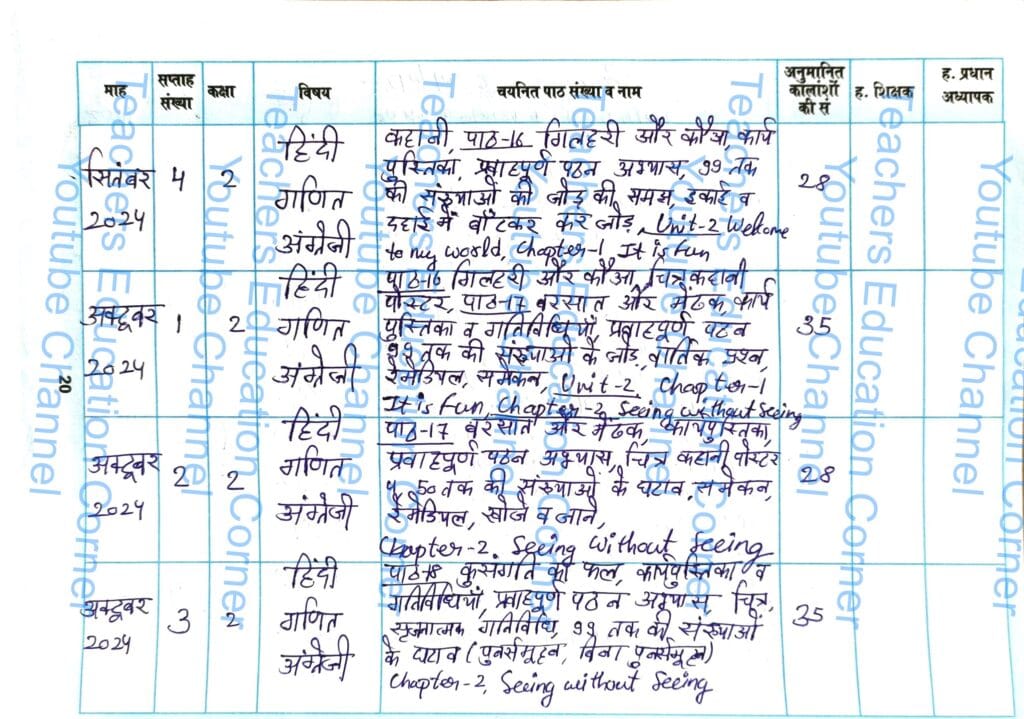 माह सप्ताह संख्या कक्षा विषय चयनित पाठ संख्या व नाम अनुमानित कालांशों की सं ह. शिक्षक ह. प्रधान अध्यापक
सितंबर 2024 4 2 हिंदी गणित अंग्रेजी 28
कहानी, पाठ-16 गिलहरी और कौआ, कार्य
पुस्तिका, प्रवाहपूर्ण पठन अभ्यास, 99 तक
की संख्याओं की जोड़ की समझ, इकाई व
दहाई में बाँटकर कर जोड़, Unit-2 Welcome
to my world, Chapter-1 It is fun
अक्टूबर 2024 1 2 हिंदी गणित अंग्रेजी 35
पाठ-16 गिलहरी और कौआ, चित्र कहानी
पोस्टर, पाठ-17 बरसात और मेंढक, कार्य
पुस्तिका व गतिविधियाँ, प्रवाहपूर्ण पठन
99 तक की संख्याओं के जोड़, वार्तिक प्रश्न,
रेमेडियल, समेकन, Unit-2 Chapter-1
It is fun, Chapter-2 Seeing without Seeing
अक्टूबर 2024 2 2 हिंदी गणित अंग्रेजी 28
पाठ-17 बरसात और मेंढक, कार्यपुस्तिका,
प्रवाहपूर्ण पठन अभ्यास, चित्र कहानी पोस्टर
50 तक की संख्याओं के घटाव, समेकन,
रेमेडियल, खोजें व जाने,
Chapter-2. Seeing without Seeing
अक्टूबर 2024 3 2 हिंदी गणित अंग्रेजी 35
पाठ-18 कुसंगति का फल, कार्यपुस्तिका व
गतिविधियाँ, प्रवाहपूर्ण पठन अभ्यास, चित्र,
सृजनात्मक गतिविधि, 99 तक की संख्याओं
के घटाव (पुनर्समूहन, बिना पुनर्समूहन)
Chapter-2, Seeing without Seeing
20
Youtube Channel
Teachers Education Corner
Youtube Channel
Teachers Education Corner
Youtube Channel
Teachers Education Corner
Youtube Channel
Teachers Education Corner
Youtube Channel
Teachers Education Corner
Youtube Channel
Teachers Education Corner